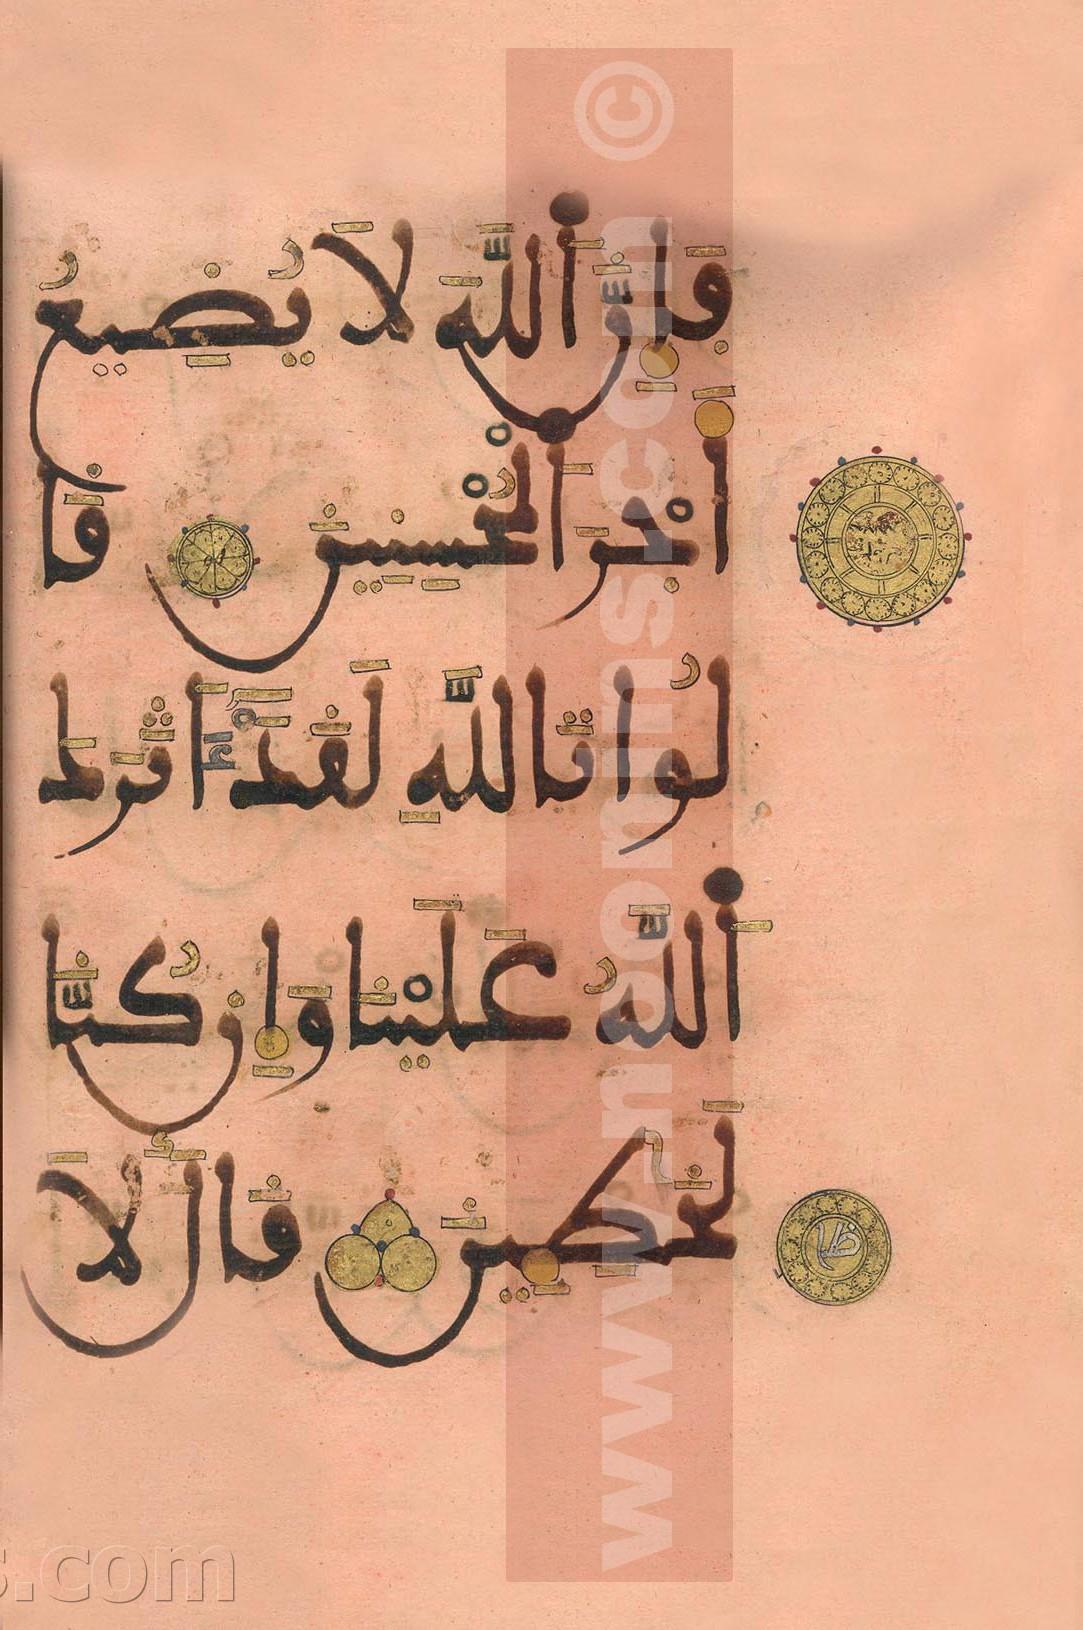 فَإِنَّ ٱللَّهَ لَا يُضِيعُ
أَجْرَ ٱلْمُحْسِنِينَ قَا
لُوا تَاللَّهِ لَقَدَ اٰثَرَكَ
ٱللَّهُ عَلَيْنَا وَإِن كُنَّا
لَخَٰطِـِٕينَ قَالَ لَا
s.com